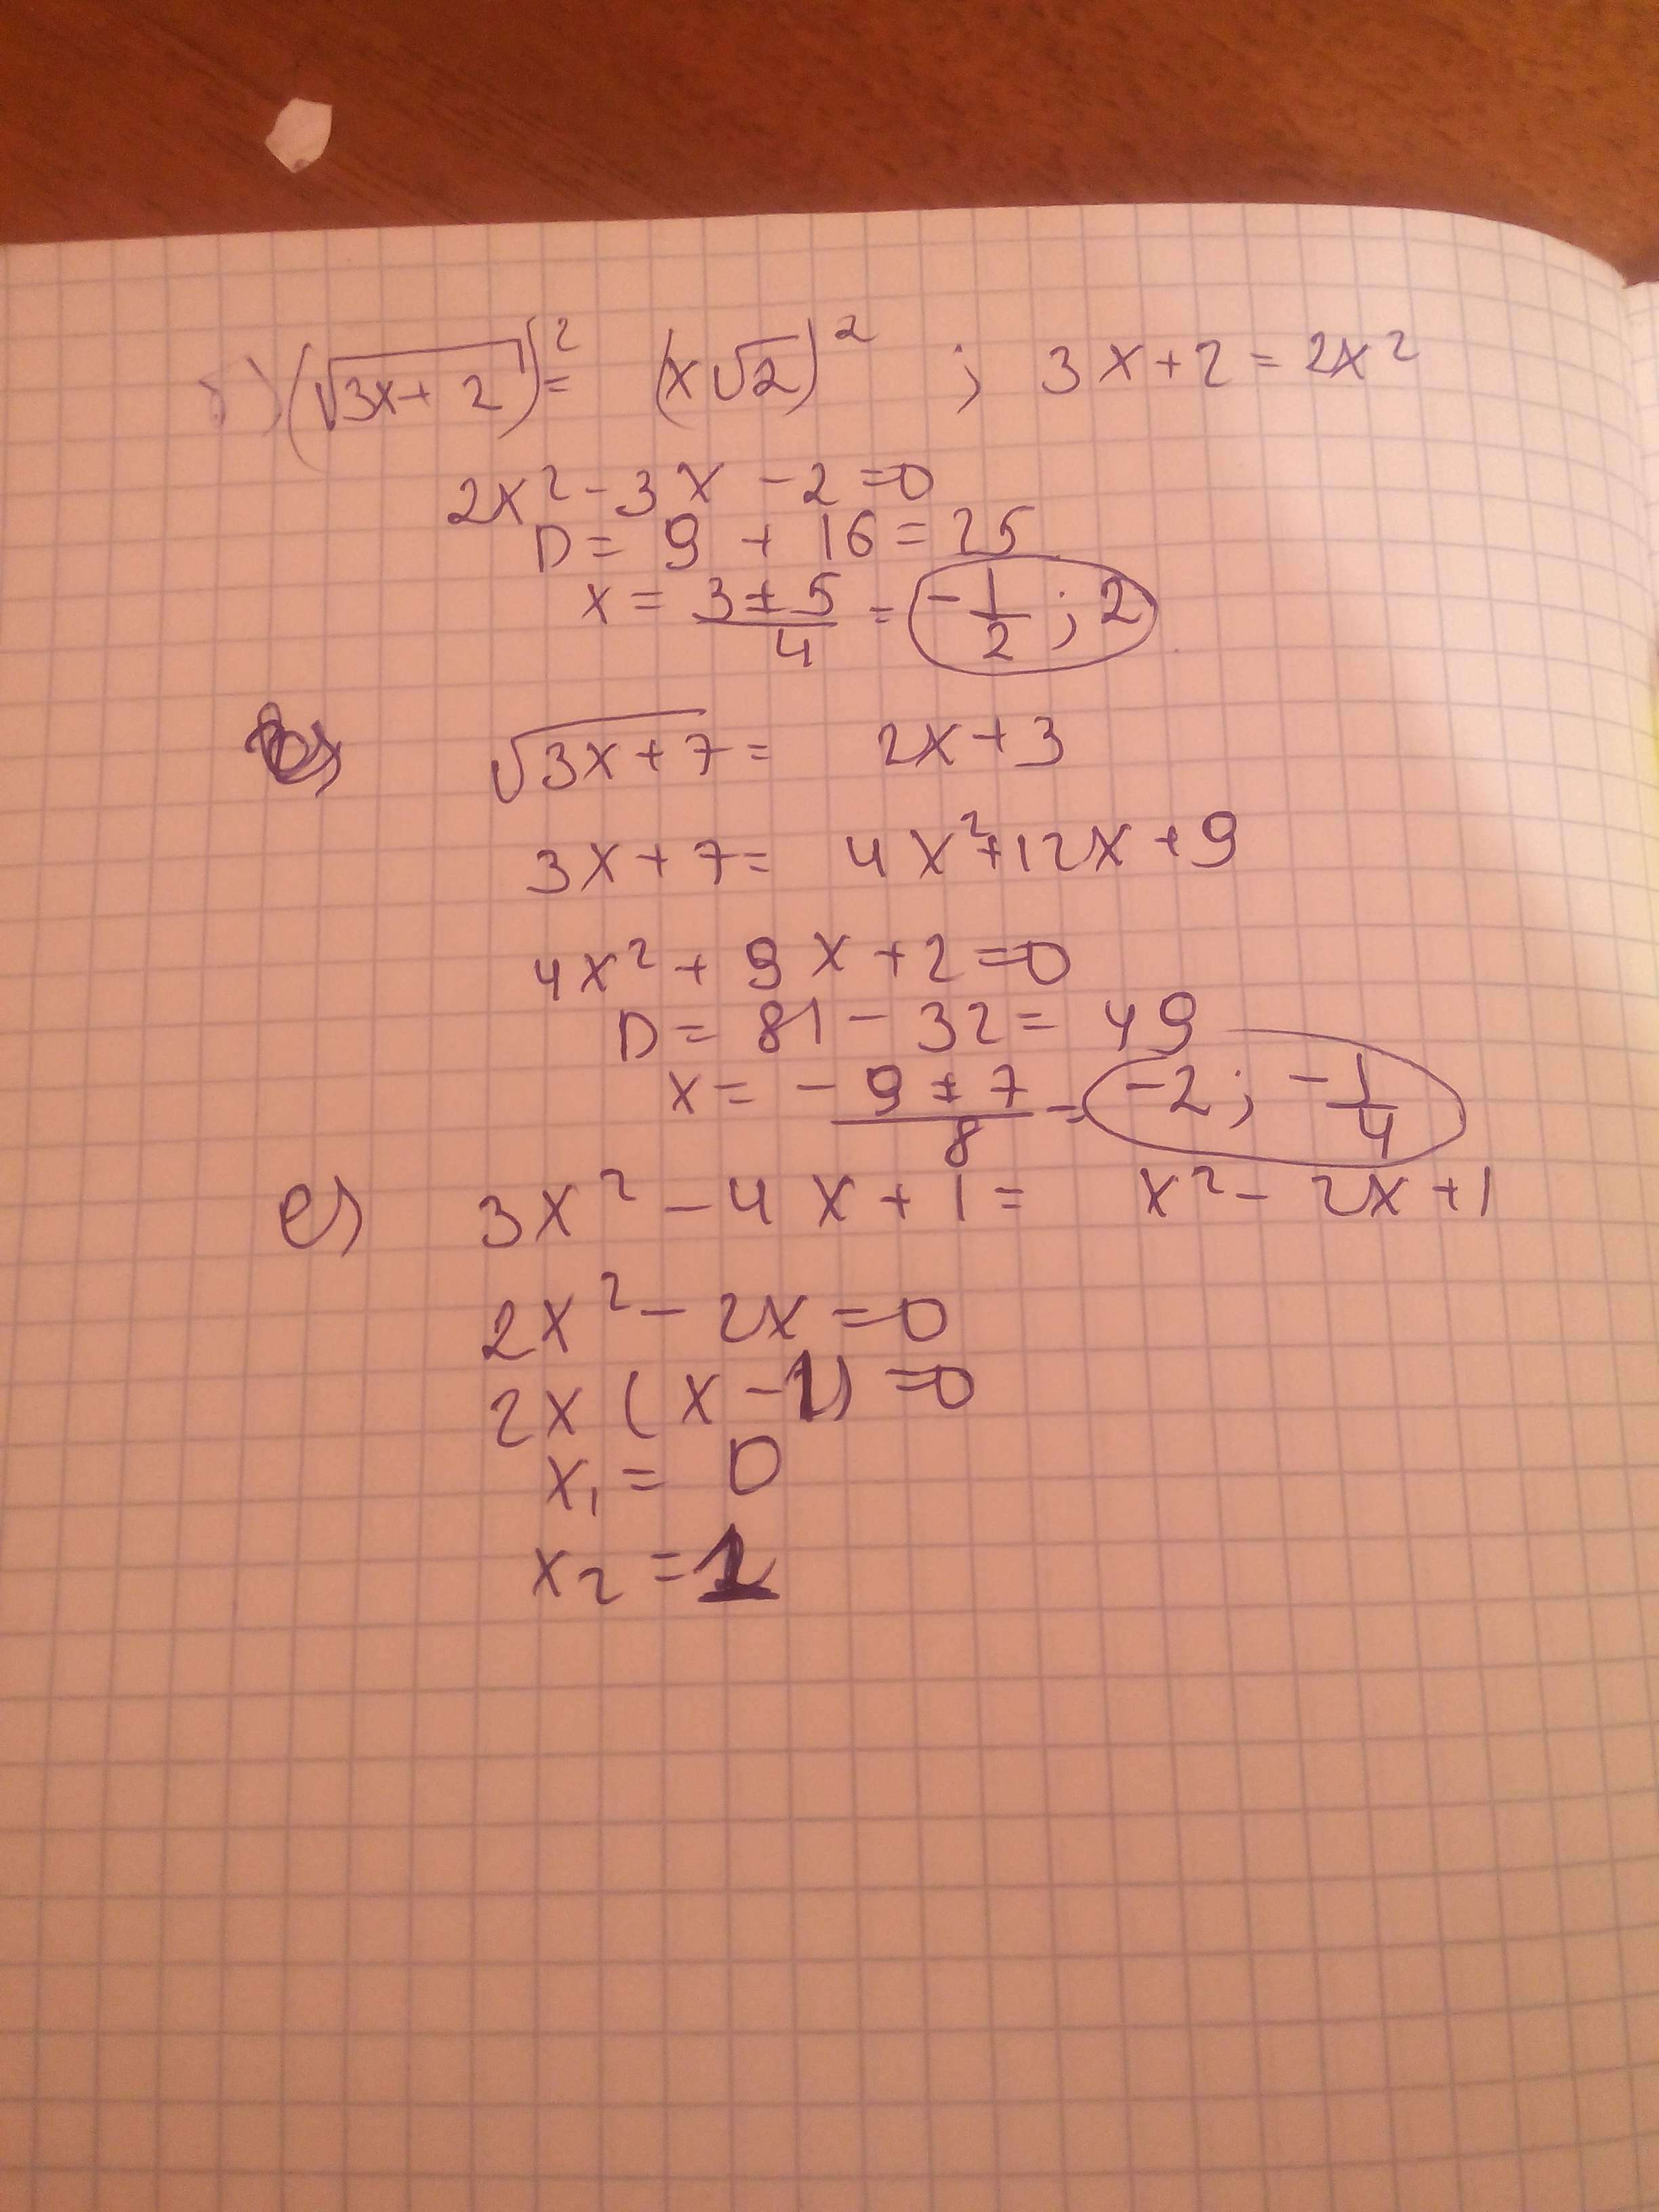 б) (√(3x+2))² = (x√2)² ; 3x+2=2x²
2x²-3x-2=0
D= 9 + 16=25
x = (3±5)/4 = -1/2 ; 2
√(3x+7) = 2x+3
3x+7= 4x²+12x+9
4x²+9x+2=0
D= 81-32= 49
x= (-9±7)/8 = -2; -1/4
e) 3x²-4x+1= x²-2x+1
2x²-2x=0
2x(x-1)=0
x₁= 0
x₂=1